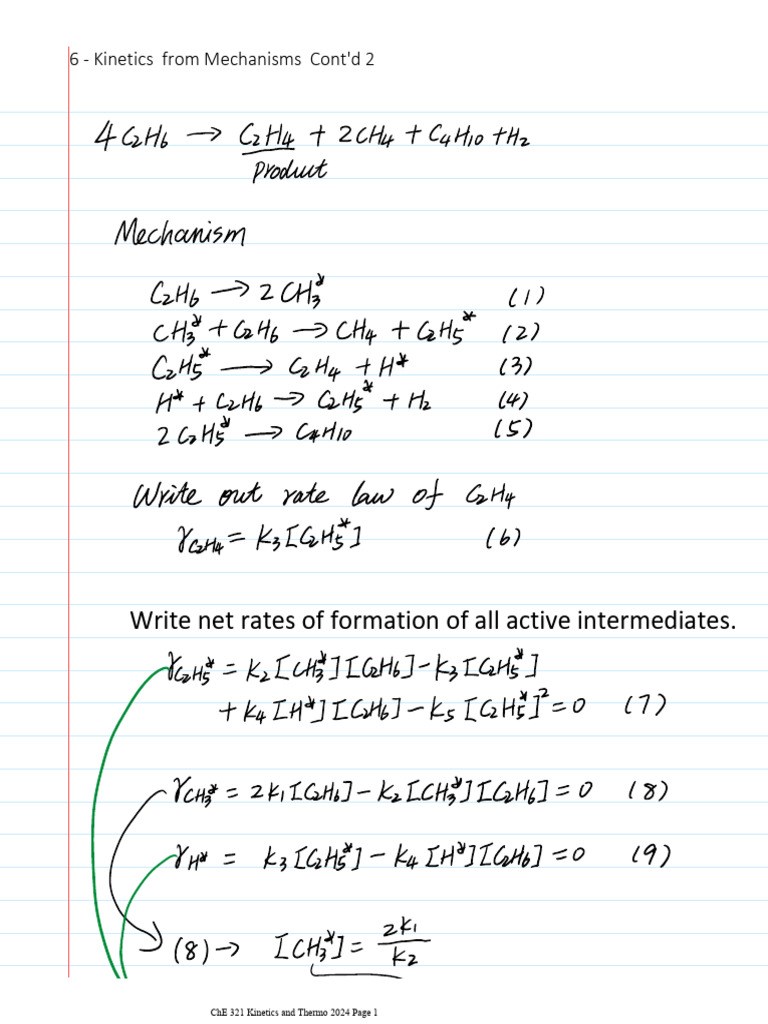 6 - Kinetics from Mechanisms Cont'd 2
4C2H6 → C2H4 + 2CH4 + C4H10 + H2
product
Mechanism
C2H6 → 2CH3* (1)
CH3* + C2H6 → CH4 + C2H5* (2)
C2H5* → C2H4 + H* (3)
H* + C2H6 → C2H5* + H2 (4)
2C2H5* → C4H10 (5)
Write out rate law of C2H4
rC2H4 = k3[C2H5*] (6)
Write net rates of formation of all active intermediates.
rC2H5* = k2[CH3*][C2H6] - k3[C2H5*]
+ k4[H*][C2H6] - k5[C2H5*]² = 0 (7)
rCH3* = 2k1[C2H6] - k2[CH3*][C2H6] = 0 (8)
rH* = k3[C2H5*] - k4[H*][C2H6] = 0 (9)
(8) → [CH3*] = 2k1/k2
ChE 321 Kinetics and Thermo 2024 Page 1